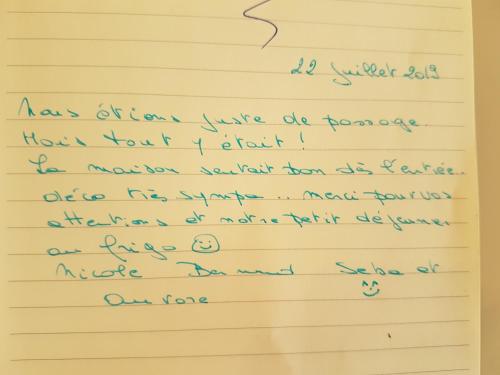 22 Juillet 2019
Nous étions juste de passage.
Mais tout y était !
La maison sentait bon dès l'entrée..
déco très sympa .. merci pour vos
attentions et notre petit déjeuner
au frigo
Nicole Bernard Seba et
Aurore